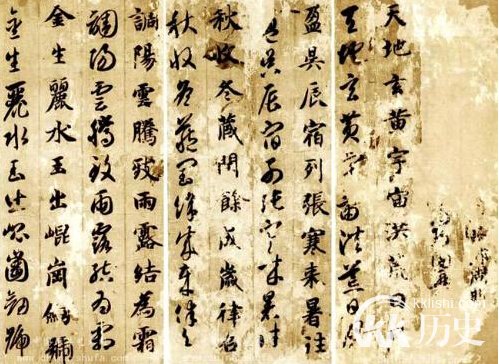 天地玄黃宇宙洪荒
天地玄黃宇宙洪荒日月
盈昃辰宿列張寒來暑往
昃辰宿列張寒來暑往
秋收冬藏閏餘成歲律呂
秋收冬藏閏餘成歲律呂
調陽雲騰致雨露結為霜
調陽雲騰致雨露結為霜
金生麗水玉出崐崗劍號
金生麗水玉出崐崗劍號
kklishi.com
历史